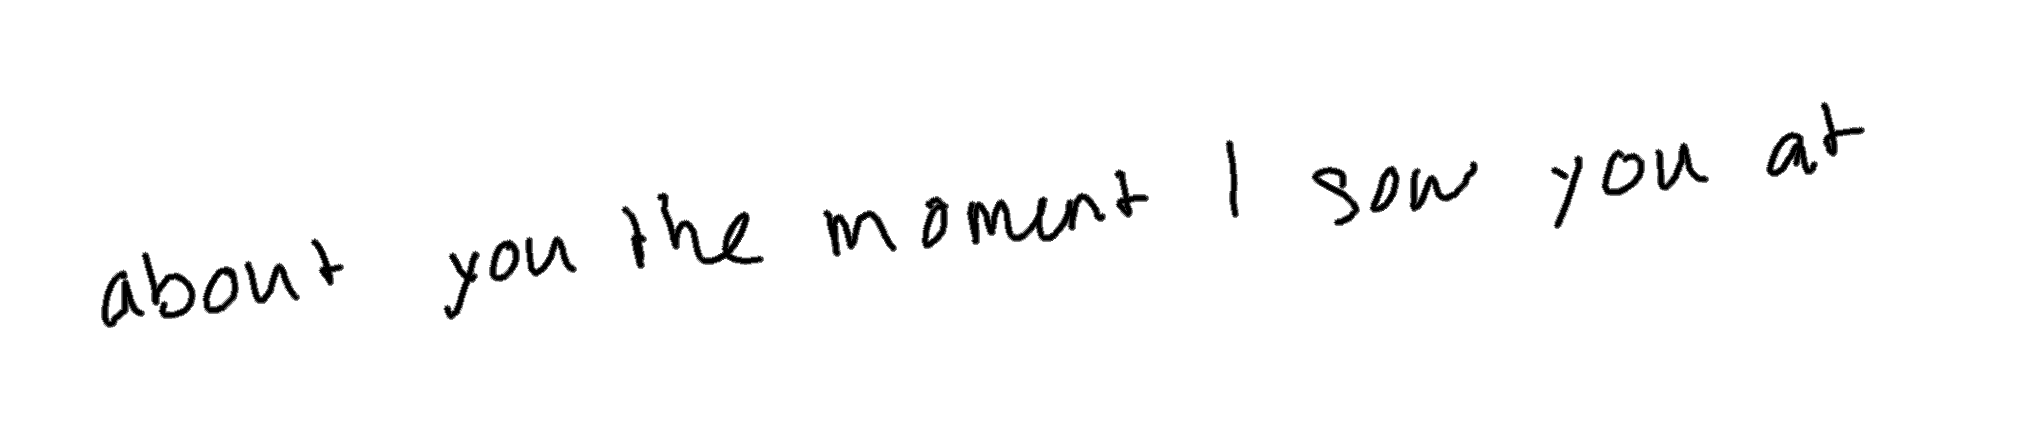 about you the moment I saw you at